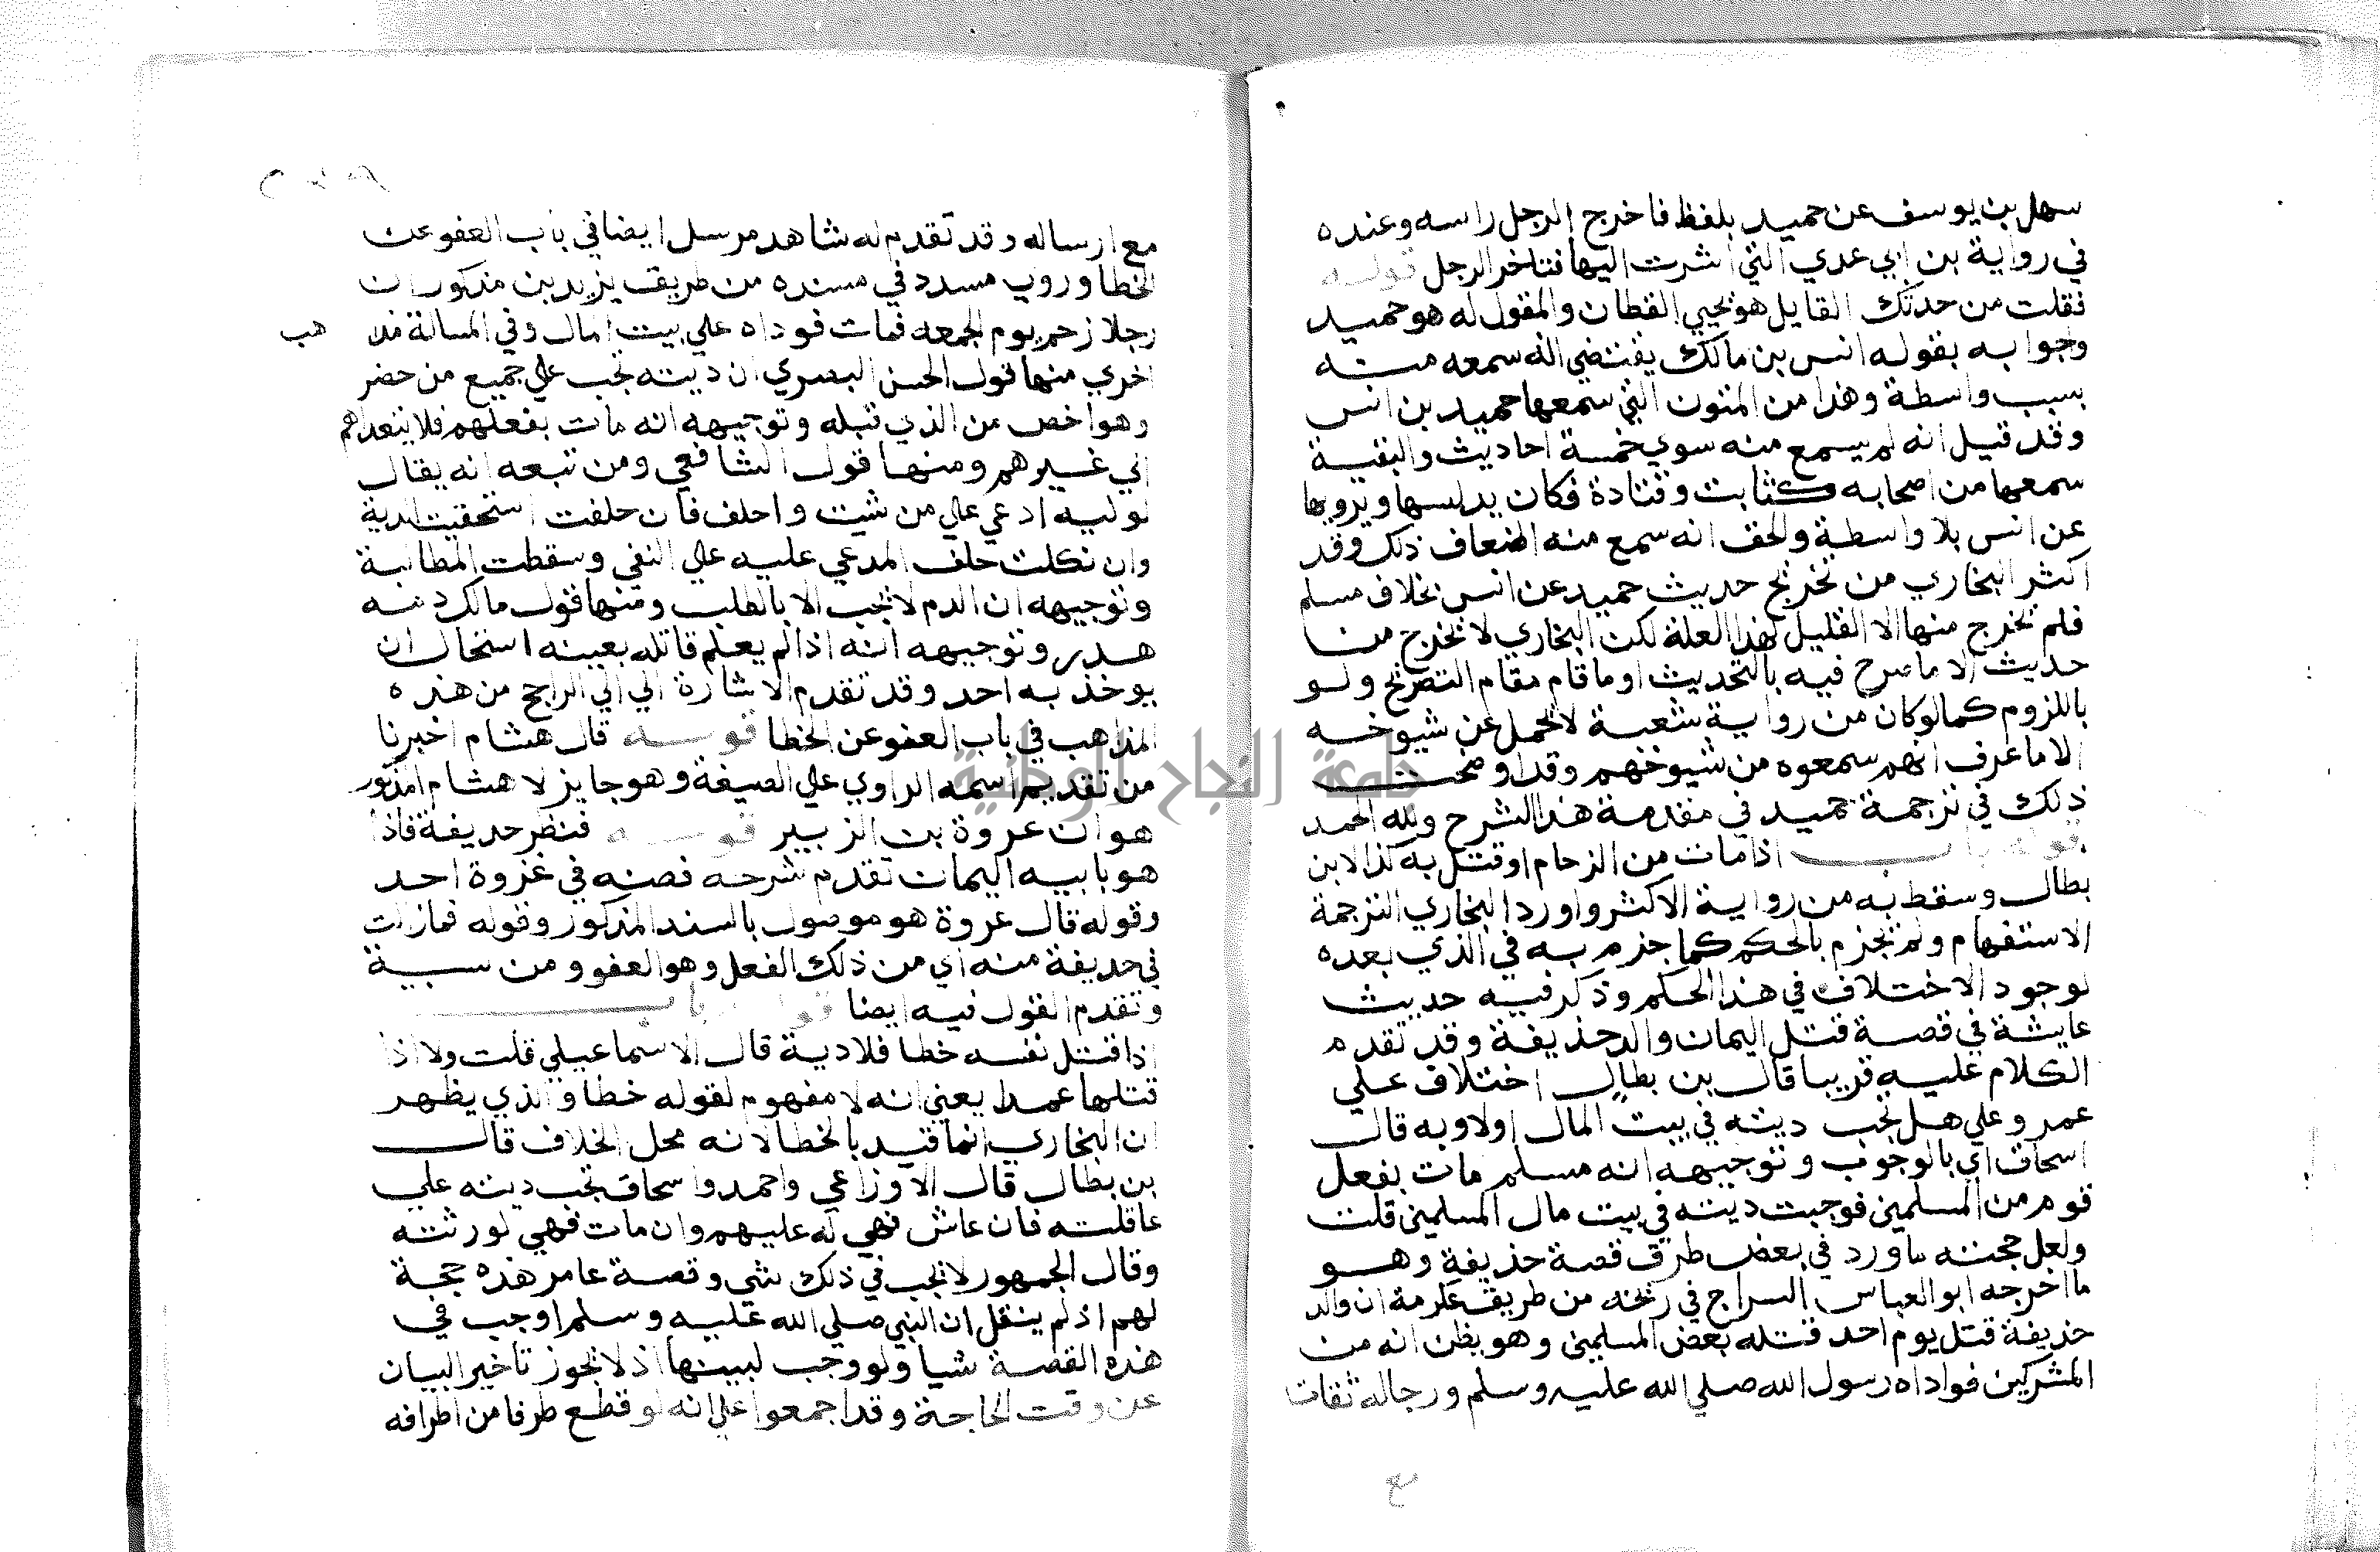 سهل بن يوسف عن حميد بلفظ فاخرج الرجل راسه وعنده
في رواية بن ابي عدي التي اشرت اليها فتاخر الرجل قوله
فقلت من حدثك القايل هو يحيي القطان والمقول له هو حميد
وجوابه بقوله انس بن مالك يقتضي انه سمعه منه
بسبب واسطة وهذا من المتون التي سمعها حميد بن انس
وقد قيل انه لم يسمع منه سوي خمسة احاديث والبقية
سمعها من اصحابه كثابت وقتادة فكان يدلسها ويرويها
عن انس بلا واسطة والحق انه سمع منه اضعاف ذلك وقد
اكثر البخاري من تخريج حديث حميد عن انس بخلاف مسلم
فلم يخرج منها الا القليل لهذا العلة لكن البخاري لا يخرج من
حديث الا ما صرح فيه بالتحديث او ما قام مقام التصريح ولو
باللزوم كما لو كان من رواية شعبة لا تحمل عن شيوخه
الا ما عرف انهم سمعوه من شيوخهم وقد اوضحت
ذلك في ترجمة حميد في مقدمة هذا الشرح ولله الحمد
قوله باب اذا مات من الزحام او قتل به كذا لابن
بطال وسقط به من رواية الاكثر واورد البخاري الترجمة
الاستفهام ولم يجزم بالحكم كما جزم به في الذي بعده
لوجود الاختلاف في هذا الحكم وذكر فيه حديث
عايشة في قصة قتل اليمان والد حذيفة وقد تقدم
الكلام عليه قريبا قال بن بطال اختلاف علي
عمر وعلي هل تجب ديته في بيت المال اولا وبه قال
اسحاق اي بالوجوب وتوجيهه انه مسلم مات بفعل
قوم من المسلمين فوجبت ديته في بيت مال المسلمين قلت
ولعل حجته ما ورد في بعض طرق قصة حذيفة وهو
ما اخرجه ابو العباس السراج في ريخه من طريق عكرمة ان والد
حذيفة قتل يوم احد قتله بعض المسلمين وهو يظن انه من
المشركين فواداه رسول الله صلي الله عليه وسلم ورجاله ثقات
مع ارساله وقد تقدم له شاهد مرسل ايضا في باب العفو عن
الخطا وروي مسدد في مسنده من طريق يزيد بن مذكور ان
رجلا زحم يوم الجمعه فمات فوداه علي بيت امال وفي المسالة مذا هب
اخري منها قول الحسن البصري ان ديته تجب علي جميع من حضر
وهو اخص من الذي قبله وتوجيهه انه مات بفعلهم فلا يتعداهم
الي غيرهم ومنها قول الشافعي ومن تبعه انه يقال
لوليه ادعي علي من شيت واحلف فان حلفت استحقيت الدية
وان نكلت حلف المدعي عليه علي النفي وسقطت المطالبة
وتوجيهه ان الدم لا يجب الا بالطلب ومنها قول مالك دمه
هدر وتوجيهه انه اذا لم يعلم قاتله بعينه استحال ان
يوخذ به احد وقد تقدم الاشارة الي الي الراجح من هذه
المذاهب في باب العفو عن الخطا قوله قال هشام اخبرنا
من تقديم اسمه الراوي علي الصيغة وهو جايز لا هشام المذكور
هو ان عروة بن الزبير قوله فنظر حديفة فاذا
هو بابيه اليمان تقدم شرحه قصته في غزوة احد
وقوله قال عروة هو موصول بالسند المذكور وقوله فما زالت
في حديفة منه اي من ذلك الفعل وهو العفو ومن سببية
وتقدم القول فيه ايضا قوله باب
اذا قتل نفسه خطا فلا دية قال الاسماعيلي قلت ولا اذا
قتلها عمدا يعني انه لا مفهوم لقوله خطا والذي يظهر
ان البخاري انما قيد بالخطا لانه محل الخلاف قال
بن بطال قال الاوزاعي واحمد واسحاق تجب ديته علي
عاقلته فان عاش فهي له عليهم وان مات فهي لورثته
وقال الجمهور لا يجب في ذلك شي وقصة عامر هذه حجة
لهم اذ لم ينقل ان النبي صلي الله عليه وسلم اوجب في
هذه القصة شيا ولو وجب لبينها اذ لا يجوز تاخير البيان
عن وقت الحاجة وقد اجمعوا علي انه لو قطع طرفا من اطرافه
جامعة النجاح الوطنية